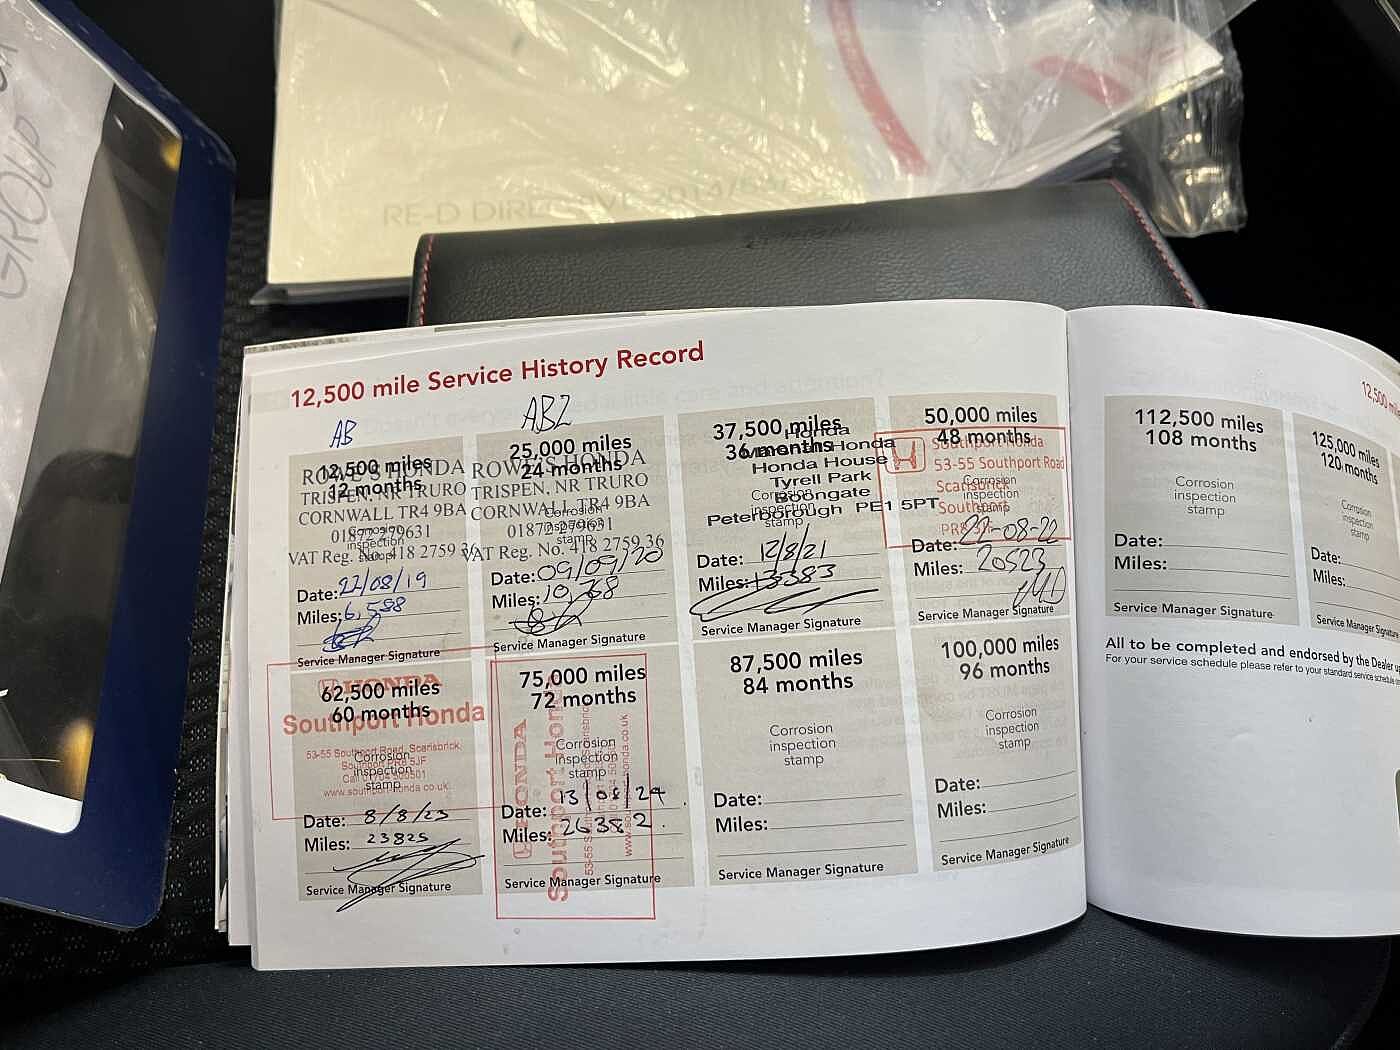 GROUP
RE-D DIRECTIVE 2014/53/
12,500 mile Service History Record
AB
12,500 miles
12 months
ROWE'S HONDA
TRISPEN, NR TRURO
CORNWALL TR4 9BA
01872 279631
VAT Reg. No. 418 2759 36
Corrosion
inspection
stamp
Date: 22/08/19
Miles: 6,588
Service Manager Signature
ABZ
25,000 miles
24 months
ROWE'S HONDA
TRISPEN, NR TRURO
CORNWALL TR4 9BA
01872 279631
VAT Reg. No. 418 2759 36
Corrosion
inspection
stamp
Date: 09/09/20
Miles:
Service Manager Signature
37,500 miles
36 months
Honda
Honda
Honda House
Tyrell Park
Boongate
Peterborough PE1 5PT
Corrosion
inspection
stamp
Date: 12/8/21
Miles: 13383
Service Manager Signature
50,000 miles
48 months
Southport Honda
53-55 Southport Road
Scarisbrick
Southport
Corrosion
inspection
stamp
Date: 22-08-22
Miles: 20523
Service Manager Signature
62,500 miles
60 months
HONDA
Southport Honda
53-55 Southport Road, Scarisbrick,
Southport PR8 5JF
www.southporthonda.co.uk
Corrosion
inspection
stamp
Date: 8/8/23
Miles: 23825
Service Manager Signature
75,000 miles
72 months
HONDA
Southport Honda
Corrosion
inspection
stamp
Date: 13/08/24
Miles: 26382.
Service Manager Signature
87,500 miles
84 months
Corrosion
inspection
stamp
Date:
Miles:
Service Manager Signature
100,000 miles
96 months
Corrosion
inspection
stamp
Date:
Miles:
Service Manager Signature
12,500 m
112,500 miles
108 months
Corrosion
inspection
stamp
Date:
Miles:
Service Manager Signature
125,000 miles
120 months
Corrosion
inspection
stamp
Date:
Miles:
Service Manager
All to be completed and endorsed by the Dealer
For your service schedule please refer to your standard service schedule